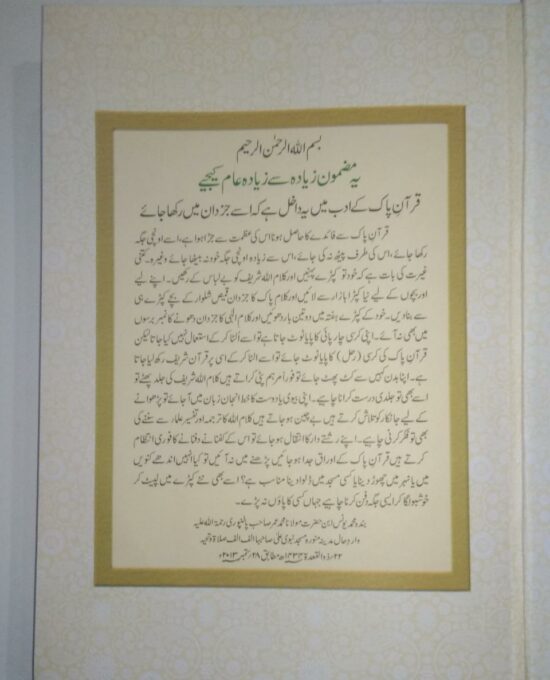 بسم اللہ الرحمٰن الرحیم
یہ مضمون زیادہ سے زیادہ عام کیجیے
قرآنِ پاک کے ادب میں یہ داخل ہے کہ اسے جزدان میں رکھا جائے
قرآن پاک سے فائدے کا حاصل ہونا اس کی عظمت سے جڑا ہوا ہے، اسے اونچی جگہ
رکھا جائے، اس کی طرف پیٹھ نہ کی جائے، اس سے زیادہ اونچی جگہ خود نہ بیٹھا جائے وغیرہ۔ کتنی
غیرت کی بات ہے کہ خود تو کپڑے پہنیں اور کلام اللہ شریف کو بے لباس کے رکھیں۔ اپنے لیے
اور بچوں کے لیے نیا کپڑا بازار سے لائیں اور کلام پاک کا جزدان قمیص شلوار کے بچے کپڑے ہی
سے بنادیں۔ خود کے کپڑے ہفتہ میں دو تین بار دھوئیں اور کلام الٰہی کا جزدان دھونے کا نمبر برسوں
میں بھی نہ آئے۔ اپنی کرسی چارپائی کا پایا ٹوٹ جاتا ہے تو اسے اُلٹا کر کے استعمال نہیں کیا جاتا لیکن
قرآن پاک کی کرسی (رحل) کا پایا ٹوٹ جائے تو اسے الٹا کر کے اسی پر قرآن شریف رکھ لیا جاتا
ہے۔ اپنا بدن کہیں سے کٹ پھٹ جائے تو فوراً مرہم پٹی کراتے ہیں کلام اللہ شریف کی جلد پھٹے تو
اسے بھی تو جلدی درست کرانا چاہیے۔ اپنی بیوی یا دوست کا خط انجان زبان میں آ جائے تو پڑھوانے
کے لیے جانکار کو تلاش کرتے ہیں بے چین ہو جاتے ہیں کلام اللہ کا ترجمہ اور تفسیر علماء سے سننے کی
بھی تو فکر کرنی چاہیے۔ اپنے رشتے دار کا انتقال ہو جائے تو اس کے کفنانے دفنانے کا فوری انتظام
کرتے ہیں قرآنِ پاک کے اوراق جدا ہو جائیں پڑھنے میں نہ آئیں تو کیا انہیں اندھے کنویں
میں یا نہر میں چھوڑ دینا یا کسی مسجد میں ڈلوا دینا مناسب ہے؟ اسے بھی نئے کپڑے میں لپیٹ کر
خوشبو لگا کر ایسی جگہ دفن کرنا چاہیے جہاں کسی کا پاؤں نہ پڑے۔
بندہ محمد یونس ابن حضرت مولانا محمد عمر صاحب پالنپوری رحمۃ اللہ علیہ
وارد حال مدینہ منورہ مسجد نبوی علیٰ صاحبہا الف الف صلاۃ وتحیہ
۲۲؍ ذوالقعدۃ ۱۴۳۴ھ مطابق ۲۸؍ ستمبر ۲۰۱۳ء